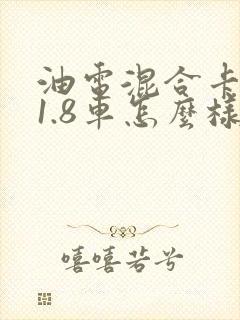 油電混合卡
1.8車怎麼樣
嘻嘻若兮